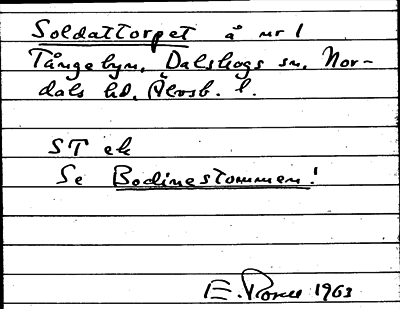 Soldattorpet å nr 1
Tångebyn, Dalskogs sn, Nor-
dals hd, Älvsb. l.
ST ek
Se Bodinestommen!
E. 1963